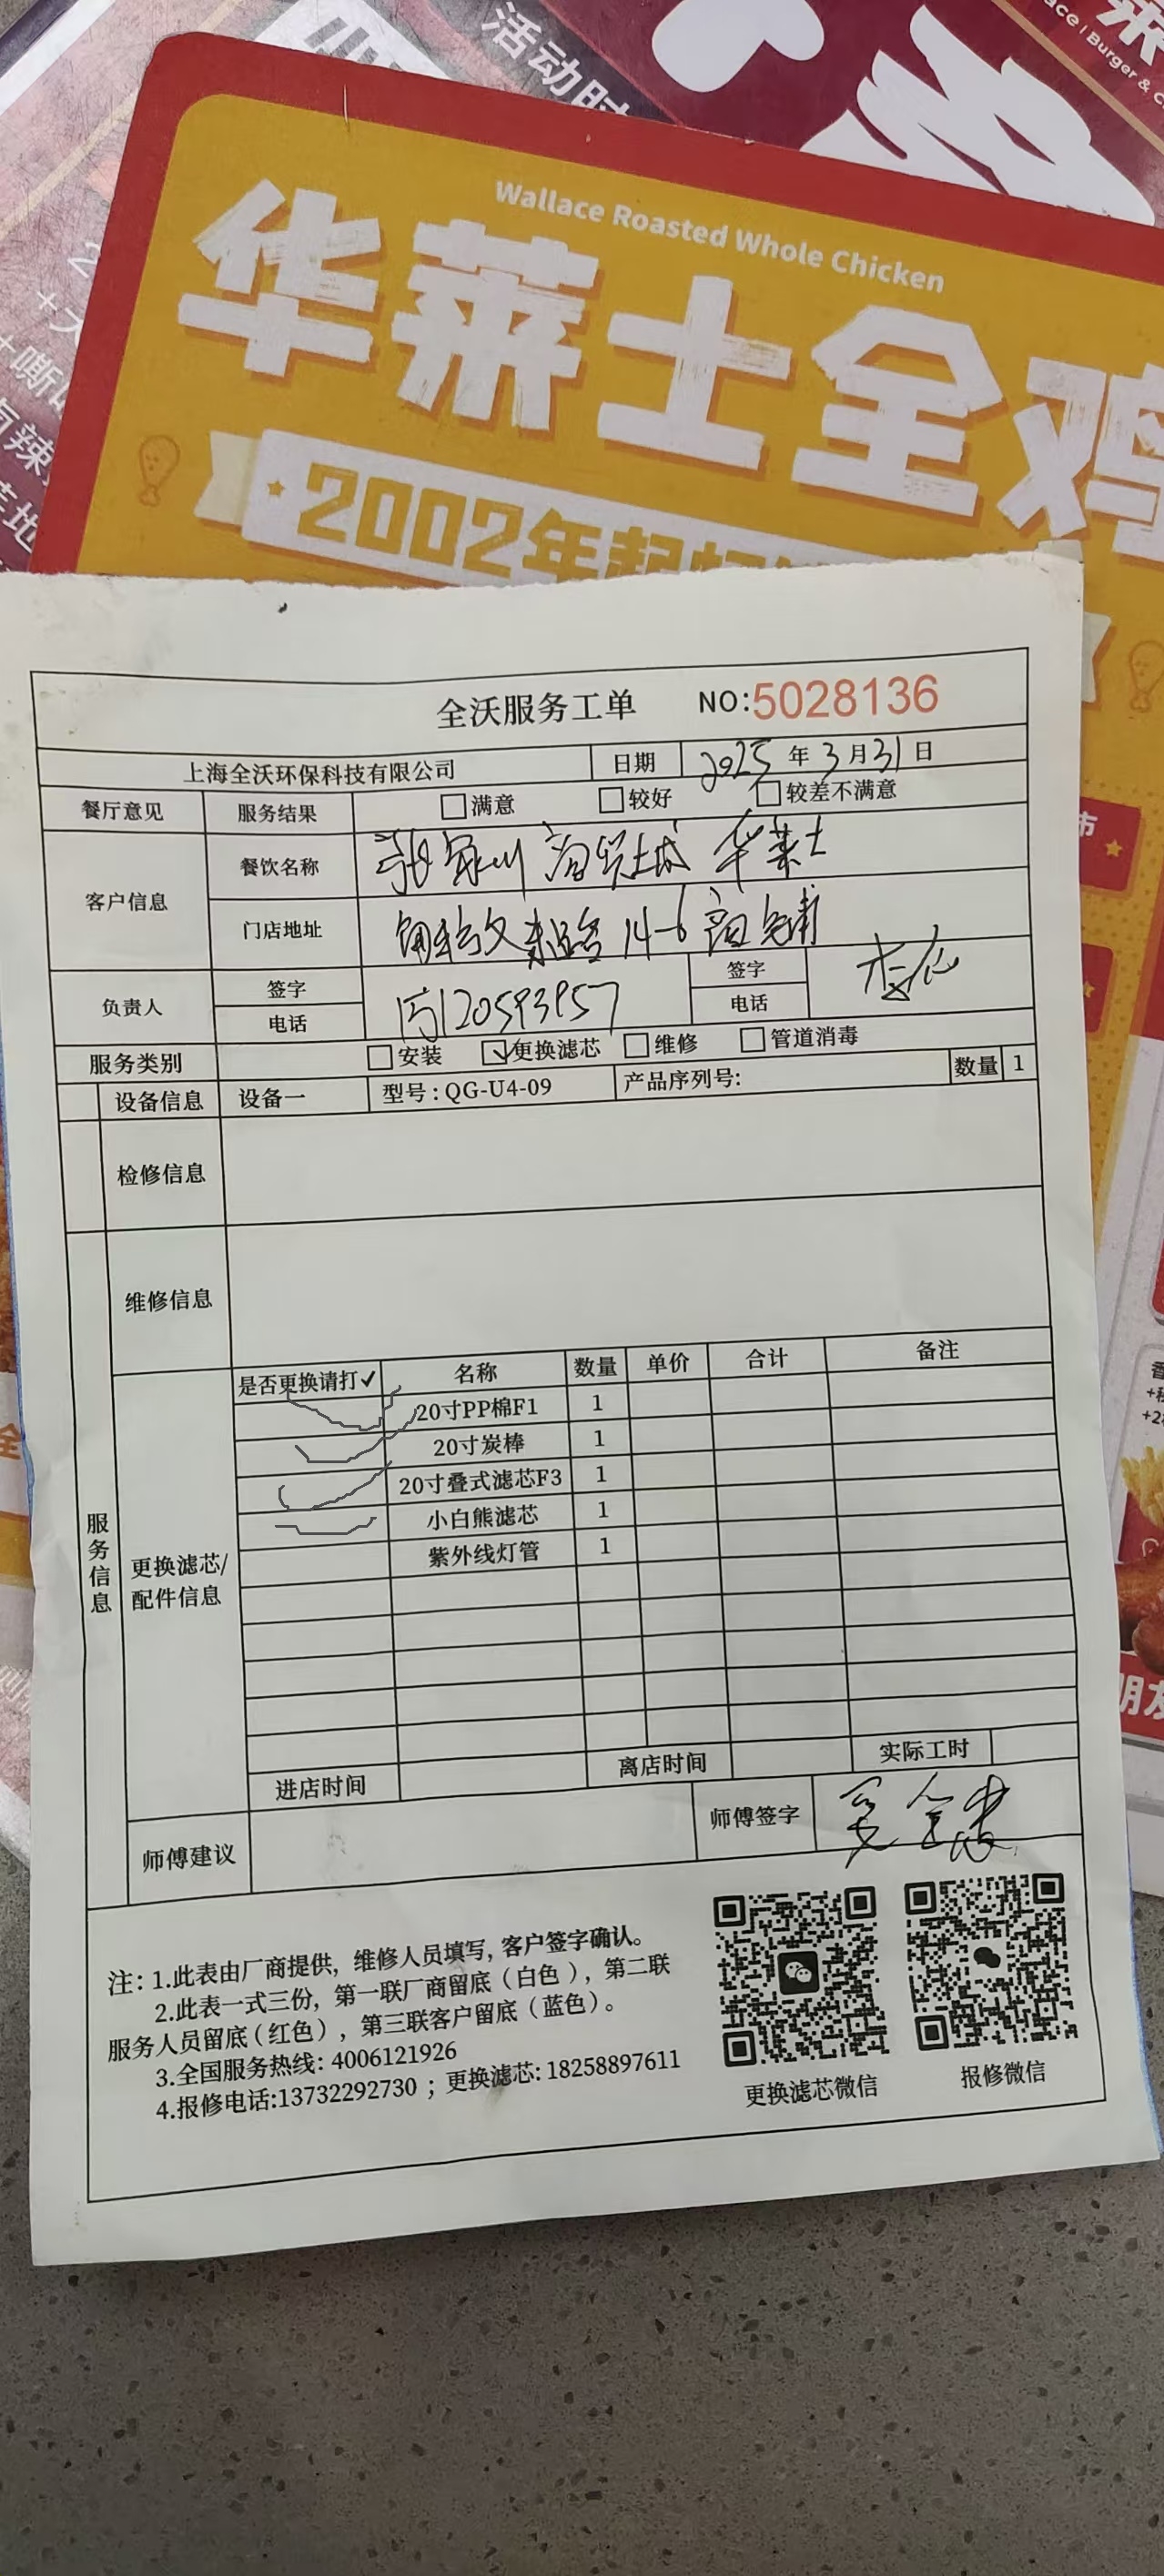 活动时
Wallace Roasted Whole Chicken
华莱士全鸡
2002年起
全沃服务工单 NO:5028136
上海全沃环保科技有限公司 日期 2025年3月31日
餐厅意见 服务结果 □满意 □较好 □较差不满意
客户信息 餐饮名称 张家川 商贸城 华莱士
门店地址 14-6 商铺
负责人 签字 签字
电话 15120593957 电话
服务类别 □安装 ☑更换滤芯 □维修 □管道消毒
设备信息 设备一 型号:QG-U4-09 产品序列号: 数量 1
检修信息
维修信息
服务信息
更换滤芯/
配件信息
是否更换请打✓ 名称 数量 单价 合计 备注
20寸PP棉F1 1
20寸炭棒 1
20寸叠式滤芯F3 1
小白熊滤芯 1
紫外线灯管 1
进店时间 离店时间 实际工时
师傅建议 师傅签字
注: 1.此表由厂商提供, 维修人员填写, 客户签字确认。
2.此表一式三份, 第一联厂商留底(白色), 第二联
服务人员留底(红色), 第三联客户留底(蓝色)。
3.全国服务热线: 4006121926
4.报修电话:13732292730 ; 更换滤芯: 18258897611
更换滤芯微信 报修微信